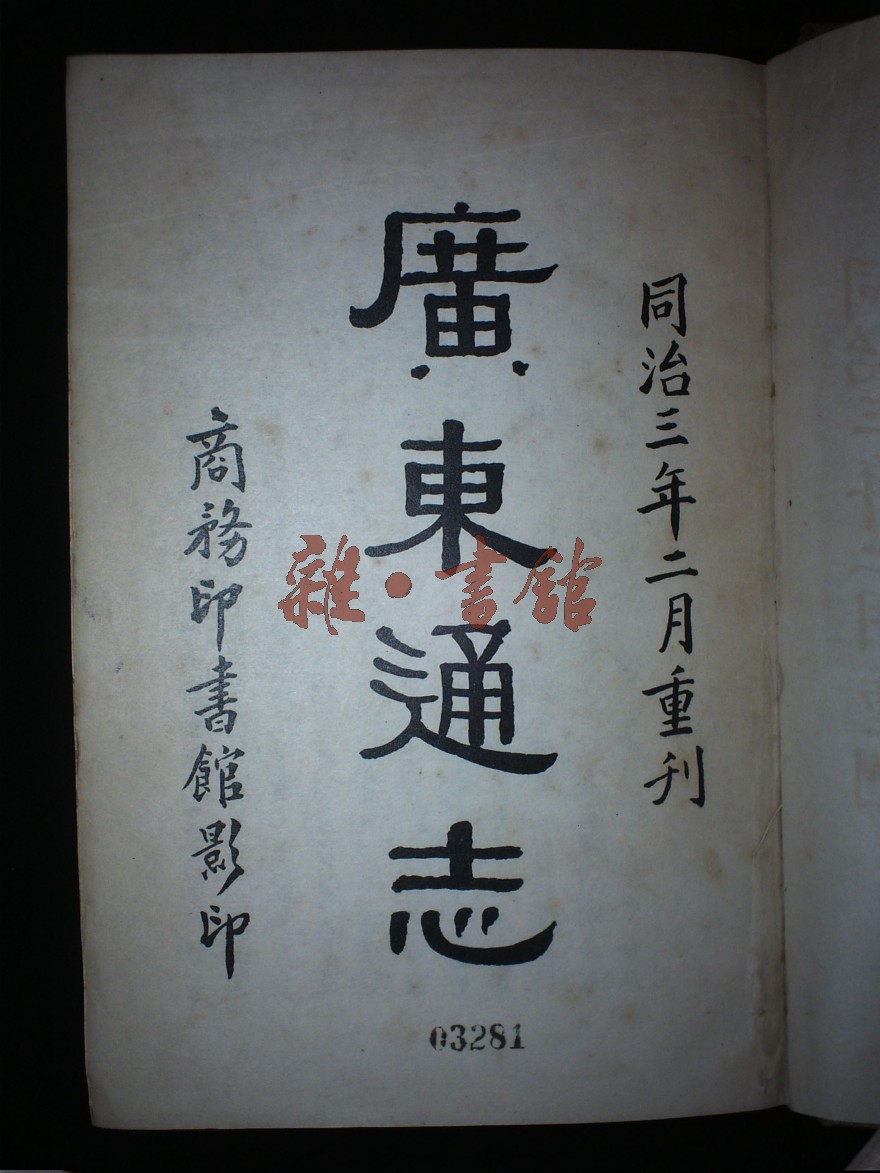 同治三年二月重刊
廣東通志
商務印書館影印
雜·書館
03281